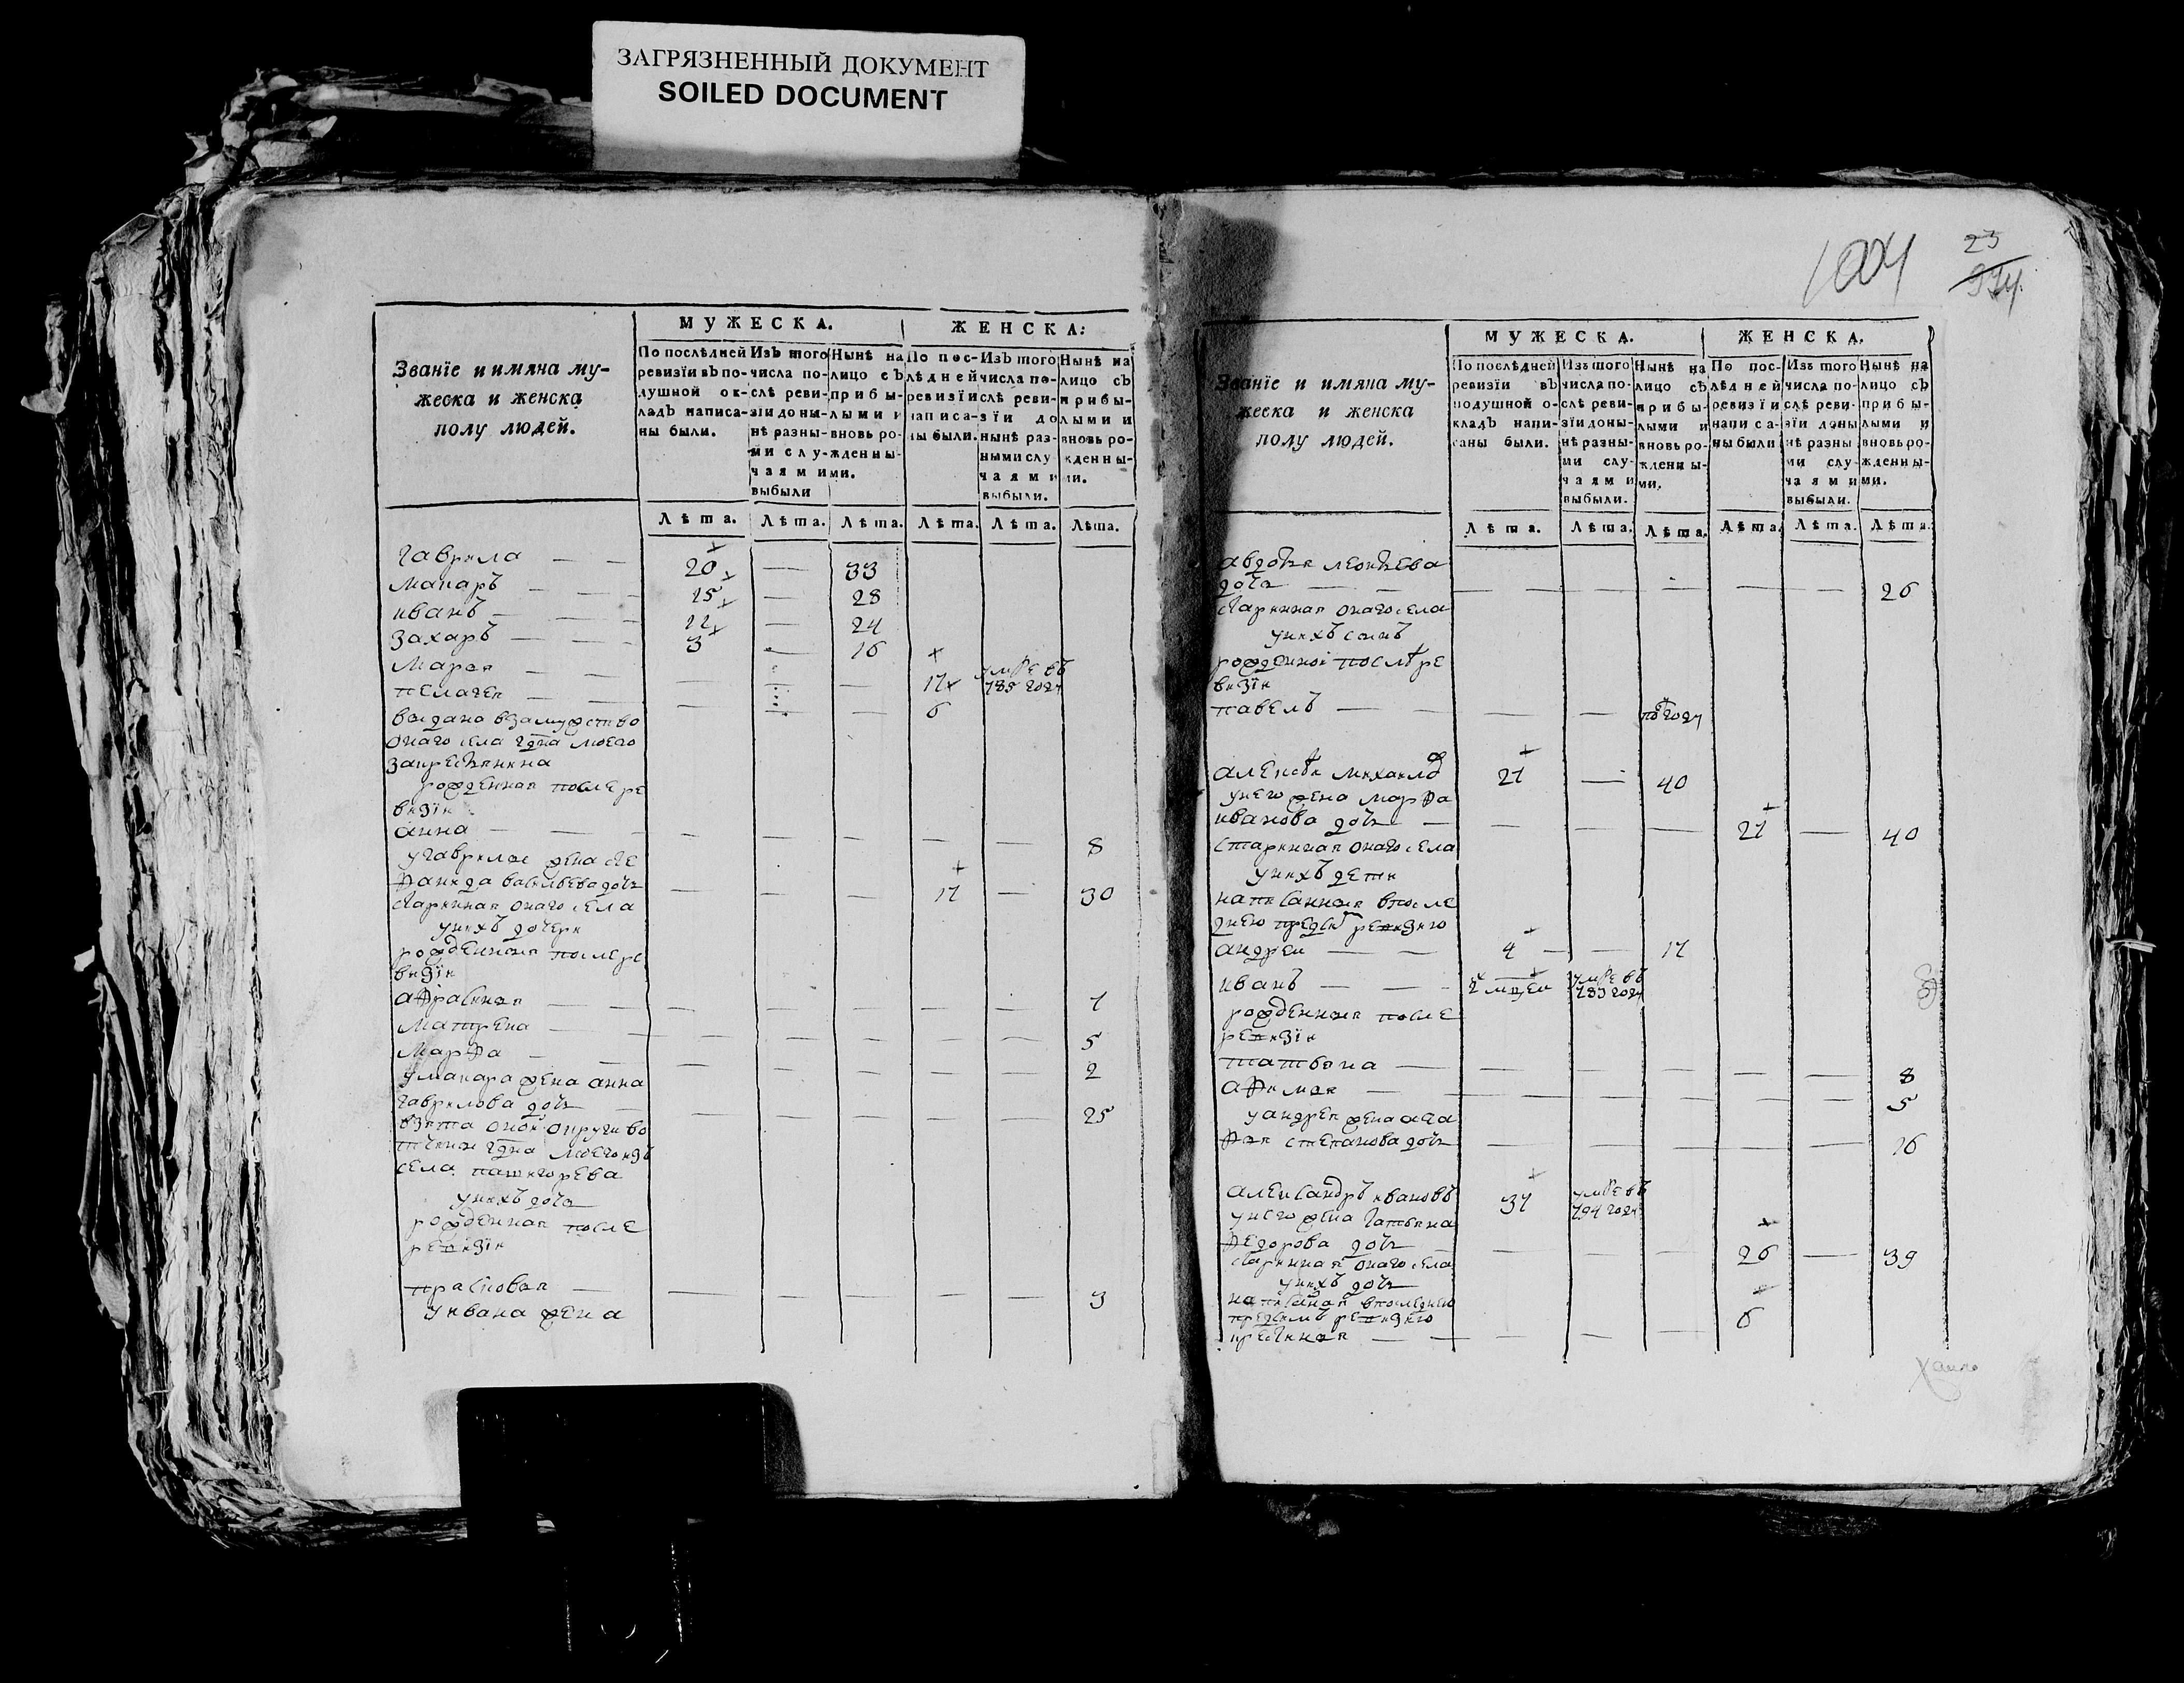 ЗАГРЯЗНЕННЫЙ ДОКУМЕНТ
SOILED DOCUMENT
Званїе и имяна му-
жеска и женска
полу людей.
МУЖЕСКА.
ЖЕНСКА:
По послѣдней
ревизїи въ по-
душной ок-
ладъ написа-
ны были.
Изъ того
числа по-
слѣ реви-
зїи до ны-
нѣ разны-
ми слу-
чаями
выбыли
Нынѣ на
лицо съ
прибы-
лыми и
вновь ро-
жденны-
ми.
По пос-
лѣдней
ревизїи
написа-
ны были.
Изъ того
числа по-
слѣ реви-
зїи до
нынѣ раз-
ными слу
чаями
выбыли.
Нынѣ на
лицо съ
прибы-
лыми и
вновь ро-
жденны-
ми.
Лѣта. Лѣта. Лѣта. Лѣта. Лѣта. Лѣта.
гаврила — — 20 — 33
макаръ — — 15 — 28
иванъ — — 12 — 24
захаръ — — 3 — 16
марья — — 17 умре въ 785 году
пелагея — — 6
выдана взамужство
онаго села
рожденная после ре
визїи
анна — — 8
у гаврилы жена сте
фанида васильева дочь — 17 — 30
старинная онаго села
у нихъ дочери
рожденныя после ре
визїи
афросинья — 7
матрена — 5
марфа — 2
у макара жена анна
гаврилова дочь — 25
взята оной округи во
села
у нихъ дочь
рожденная после
ревизїи
прасковья — 3
у ивана жена
1004
23
994
Званїе и имяна му-
жеска и женска
полу людей.
МУЖЕСКА.
ЖЕНСКА.
По послѣдней
ревизїи въ
подушной о-
кладъ напи-
саны были.
Изъ того
числа по-
слѣ реви-
зїи до ны-
нѣ разны-
ми слу-
чаями
выбыли.
Нынѣ на
лицо съ
прибы-
лыми и
вновь ро-
жденны-
ми.
По пос-
лѣдней
ревизїи
написа-
ны были
Изъ того
числа по-
слѣ реви-
зїи до ны
нѣ разны
ми слу-
чаями
выбыли.
Нынѣ на
лицо съ
прибы-
лыми и
вновь ро-
жденны-
ми.
Лѣта. Лѣта. Лѣта. Лѣта. Лѣта. Лѣта.
авдотья леонтьева
дочь — 26
старинная онаго села
у нихъ сынъ
рожденной послѣ ре
визїи
павелъ — —
алексѣй михайловъ 27 — 40
у него жена марфа
иванова дочь — 27 — 40
старинная онаго села
у нихъ дети
написанныя в после
днею предъ сим ревизию
андрей — 4 — 17
иванъ — 2 месецы умре въ 783 году
рожденныя после
ревизїи
татьяна — 8
афимья — 5
у андрея жена ага
фья степанова дочь — 16
александръ ивановъ 37 умре въ 794 году
у него жена татьяна
федорова дочь — 26 — 39
старинная онаго села
у нихъ дочь
написаная в последнею
предъ симъ ревизию
кристинья — 6